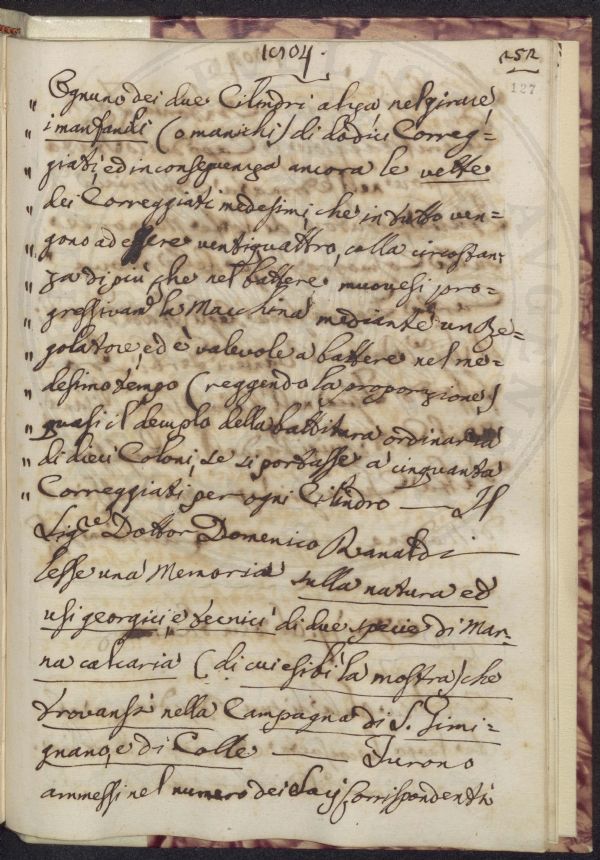 1804.
252
127
" Ognuno dei due Cilindri alza nel girare
" i manfanili (o manichi) di dodici Correg=
" giati, ed in conseguenza ancora le vette
" dei Correggiati medesimi, che in tutto ven=
" gono ad essere ventiquattro, colla circostan=
" za di più che nel battere muovesi pro=
" gressivam.e la Macchina mediante un Re=
" golatore, ed è valevole a battere nel me=
" desimo tempo (reggendo la proporzione)
" quasi il decuplo della battitura ordinaria
" di dieci Coloni, se si portasse a cinquanta
" Correggiati per ogni Cilindro — Il
Sig.re Dottor Domenico Ranaldi
lesse una Memoria sulla natura ed
usi georgici e tecnici di due specie di Mar=
na calcaria (di cui esibì la mostra) che
trovansi nella Campagna di S. Gimi=
gnano, e di Colle — Furono
ammessi nel numero dei Socj Corrispondenti